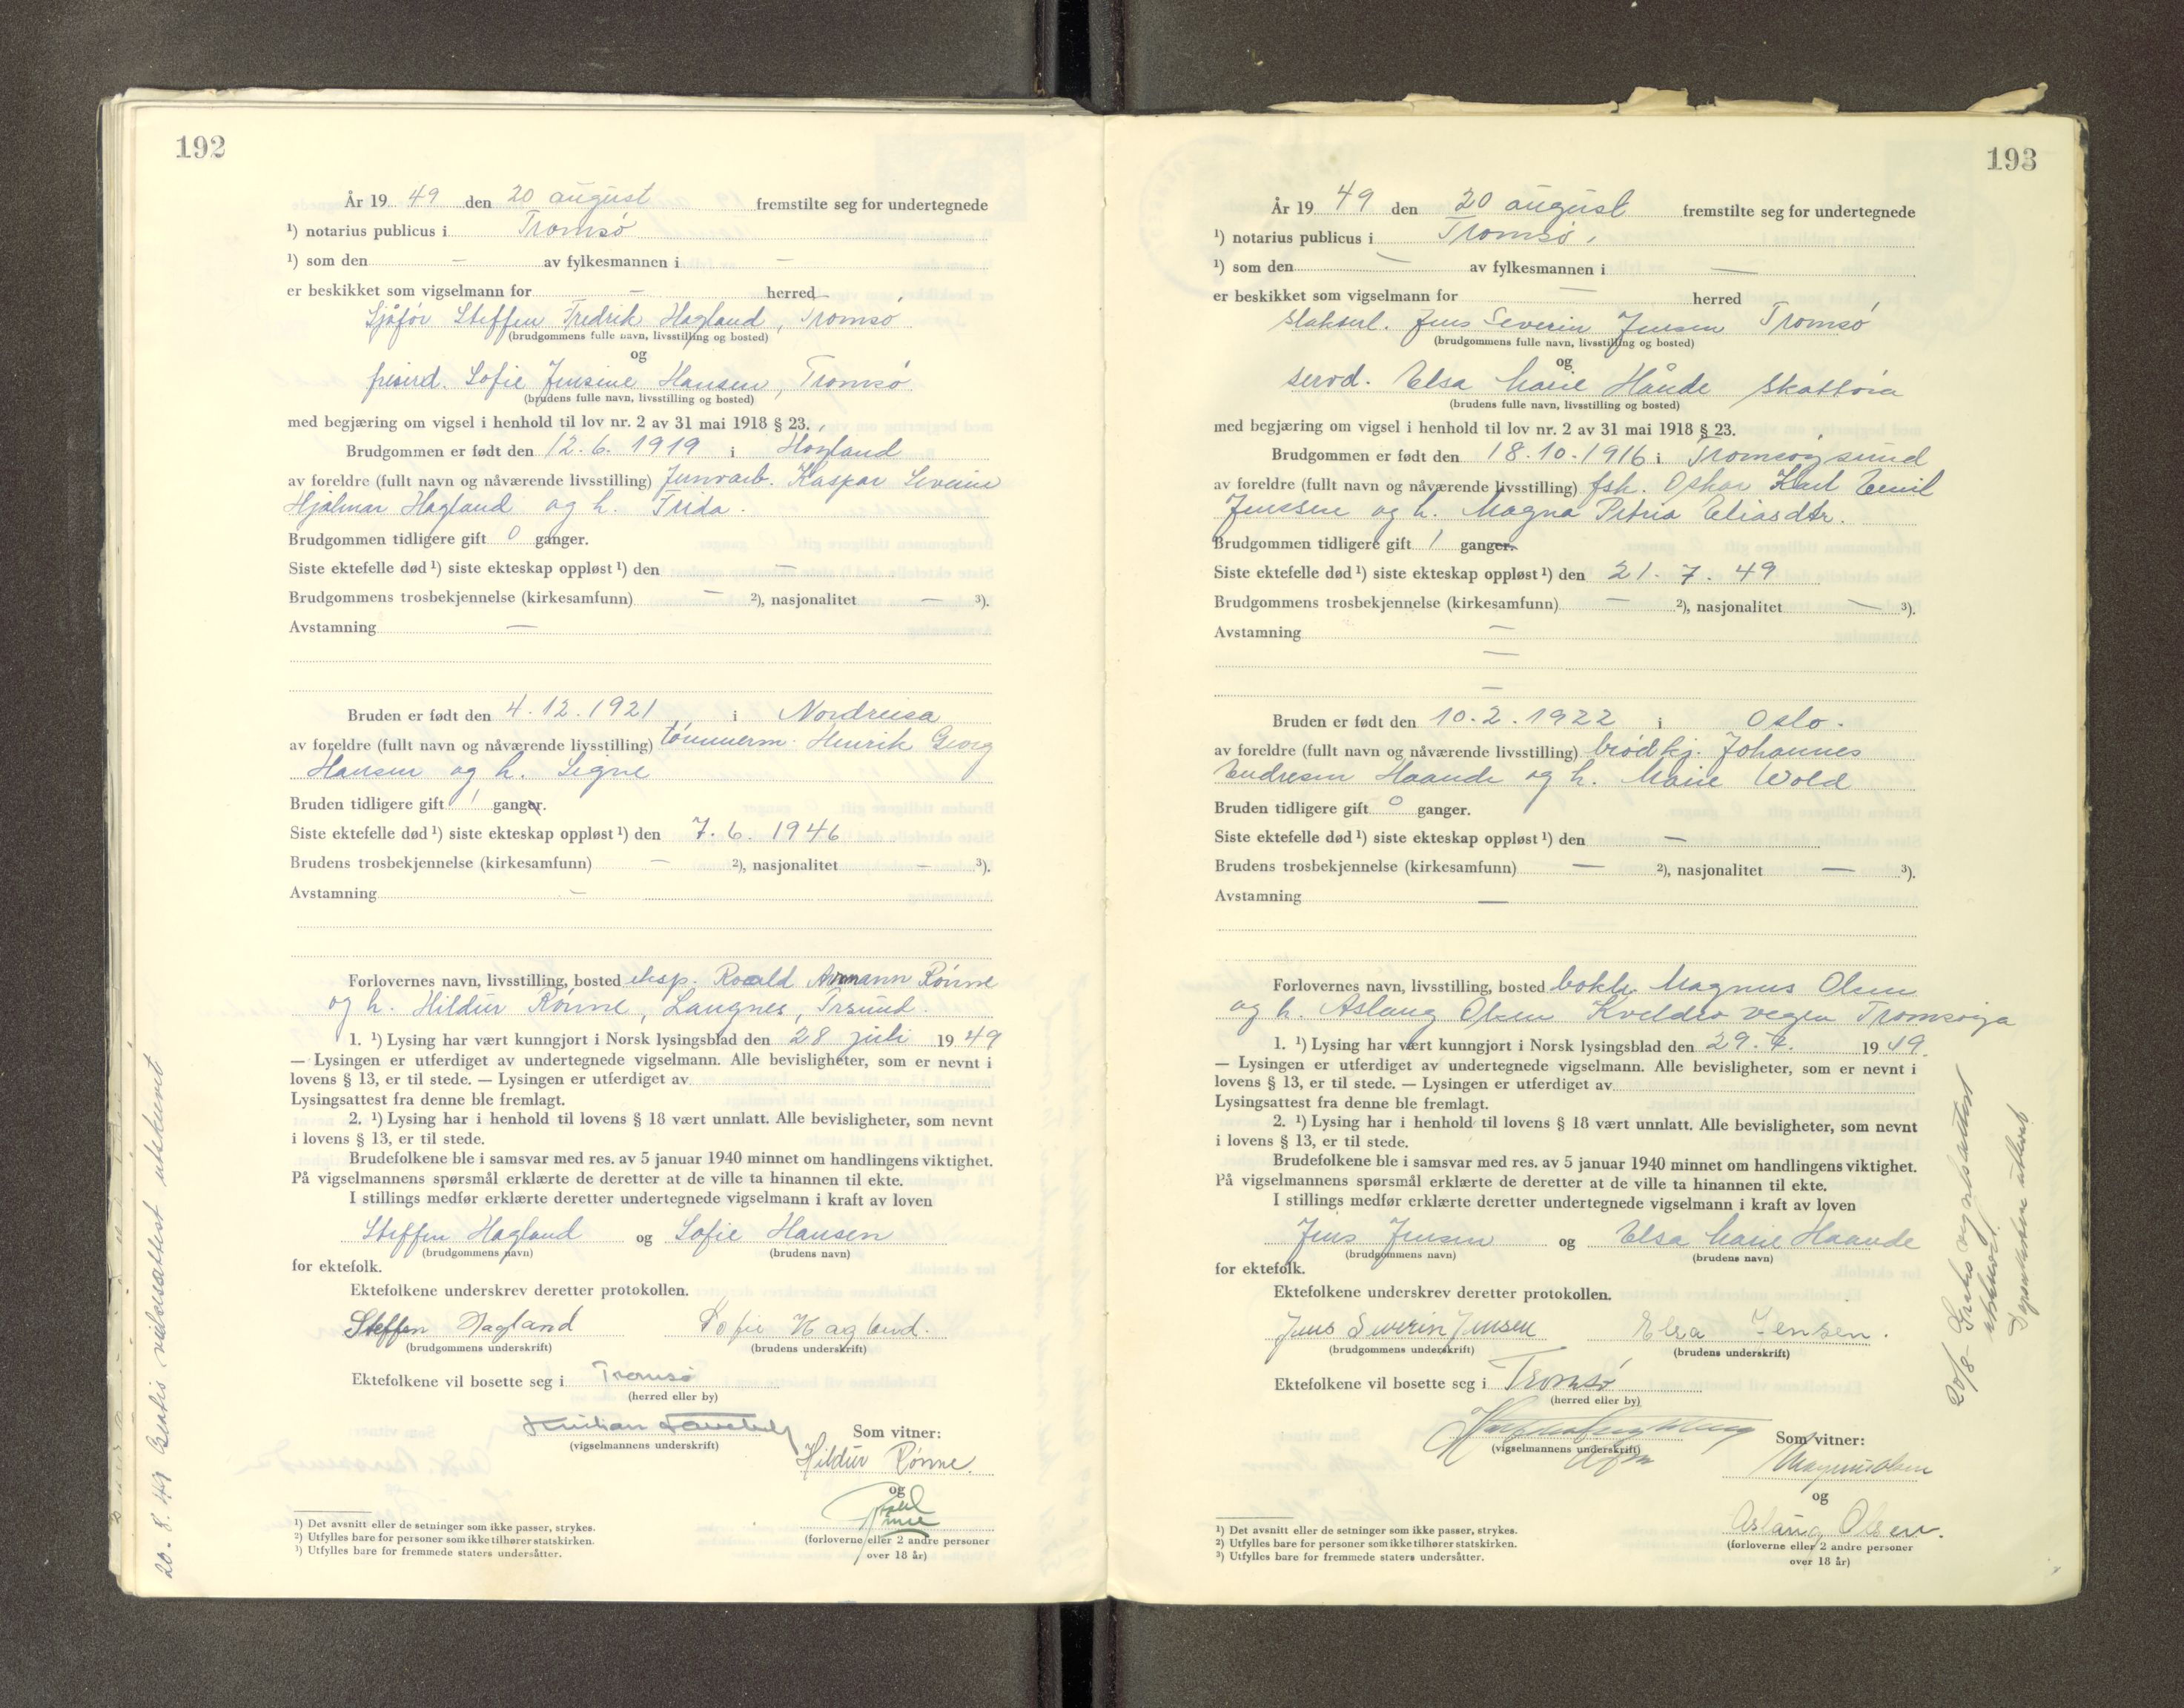 192
År 19 49 den 20 august fremstilte seg for undertegnede
¹) notarius publicus i Tromsø
¹) som den — av fylkesmannen i —
er beskikket som vigselmann for — herred
Sjåfør Steffen Fredrik Hagland, Tromsø
(brudgommens fulle navn, livsstilling og bosted)
og
Sofie Jensine Hansen, Tromsø
(brudens fulle navn, livsstilling og bosted)
med begjæring om vigsel i henhold til lov nr. 2 av 31 mai 1918 § 23.
Brudgommen er født den 12.6.1919 i Hagland
av foreldre (fullt navn og nåværende livsstilling) Kaspar Severin
Hjalmar Hagland og h. Frida.
Brudgommen tidligere gift 0 ganger.
Siste ektefelle død ¹) siste ekteskap oppløst ¹) den —
Brudgommens trosbekjennelse (kirkesamfunn) — ²), nasjonalitet — ³).
Avstamning —
Bruden er født den 4.12.1921 i Nordreisa
av foreldre (fullt navn og nåværende livsstilling) tømmerm. Henrik Georg
Hansen og h. Signe
Bruden tidligere gift 1 ganger.
Siste ektefelle død ¹) siste ekteskap oppløst ¹) den 7.6.1946
Brudens trosbekjennelse (kirkesamfunn) — ²), nasjonalitet — ³).
Avstamning —
Forlovernes navn, livsstilling, bosted eksp. Roald Rønne
og h. Hildur Rønne, Langnes, Trsund.
1. ¹) Lysing har vært kunngjort i Norsk lysingsblad den 28 juli 19 49
— Lysingen er utferdiget av undertegnede vigselmann. Alle bevisligheter, som er nevnt i
lovens § 13, er til stede. — Lysingen er utferdiget av
Lysingsattest fra denne ble fremlagt.
2. ¹) Lysing har i henhold til lovens § 18 vært unnlatt. Alle bevisligheter, som nevnt
i lovens § 13, er til stede.
Brudefolkene ble i samsvar med res. av 5 januar 1940 minnet om handlingens viktighet.
På vigselmannens spørsmål erklærte de deretter at de ville ta hinannen til ekte.
I stillings medfør erklærte deretter undertegnede vigselmann i kraft av loven
Steffen Hagland og Sofie Hansen
(brudgommens navn) (brudens navn)
for ektefolk.
Ektefolkene underskrev deretter protokollen.
Steffen Hagland Sofie Hagland.
(brudgommens underskrift) (brudens underskrift)
Ektefolkene vil bosette seg i Tromsø
(herred eller by)
(vigselmannens underskrift)
Som vitner:
Hildur Rønne.
og
(forloverne eller 2 andre personer
over 18 år)
¹) Det avsnitt eller de setninger som ikke passer, strykes.
²) Utfylles bare for personer som ikke tilhører statskirken.
³) Utfylles bare for fremmede staters undersåtter.
20-8-49 Gratis vielsesattest utskrevet
193
År 19 49 den 20 august fremstilte seg for undertegnede
¹) notarius publicus i Tromsø,
¹) som den — av fylkesmannen i —
er beskikket som vigselmann for — herred
Jens Severin Jensen Tromsø
(brudgommens fulle navn, livsstilling og bosted)
og
Elsa Marie Hånde Skattøra
(brudens fulle navn, livsstilling og bosted)
med begjæring om vigsel i henhold til lov nr. 2 av 31 mai 1918 § 23.
Brudgommen er født den 18.10.1916 i Tromsøysund
av foreldre (fullt navn og nåværende livsstilling) fsk. Oskar Karl Emil
Jenssen og h. Magna Petria Eliasdtr.
Brudgommen tidligere gift 1 ganger.
Siste ektefelle død ¹) siste ekteskap oppløst ¹) den 21.7.49
Brudgommens trosbekjennelse (kirkesamfunn) — ²), nasjonalitet — ³).
Avstamning —
—
—
Bruden er født den 10.2.1922 i Oslo.
av foreldre (fullt navn og nåværende livsstilling) brødkj. Johannes
Endresen Haande og h. Marie Wold
Bruden tidligere gift 0 ganger.
Siste ektefelle død ¹) siste ekteskap oppløst ¹) den —
Brudens trosbekjennelse (kirkesamfunn) — ²), nasjonalitet — ³).
Avstamning —
Forlovernes navn, livsstilling, bosted bokh. Magnus Olsen
og h. Aslaug Olsen Kveldrovegen Tromsøya
1. ¹) Lysing har vært kunngjort i Norsk lysingsblad den 29.7. 19 49.
— Lysingen er utferdiget av undertegnede vigselmann. Alle bevisligheter, som er nevnt i
lovens § 13, er til stede. — Lysingen er utferdiget av
Lysingsattest fra denne ble fremlagt.
2. ¹) Lysing har i henhold til lovens § 18 vært unnlatt. Alle bevisligheter, som nevnt
i lovens § 13, er til stede.
Brudefolkene ble i samsvar med res. av 5 januar 1940 minnet om handlingens viktighet.
På vigselmannens spørsmål erklærte de deretter at de ville ta hinannen til ekte.
I stillings medfør erklærte deretter undertegnede vigselmann i kraft av loven
Jens Jensen og Elsa Marie Haande
(brudgommens navn) (brudens navn)
for ektefolk.
Ektefolkene underskrev deretter protokollen.
Jens Severin Jensen Elsa Jensen.
(brudgommens underskrift) (brudens underskrift)
Ektefolkene vil bosette seg i Tromsø
(herred eller by)
(vigselmannens underskrift)
Som vitner:
Magnus Olsen
og
Aslaug Olsen.
(forloverne eller 2 andre personer
over 18 år)
¹) Det avsnitt eller de setninger som ikke passer, strykes.
²) Utfylles bare for personer som ikke tilhører statskirken.
³) Utfylles bare for fremmede staters undersåtter.
20/8- Gratis vigselsattest
utskrevet.